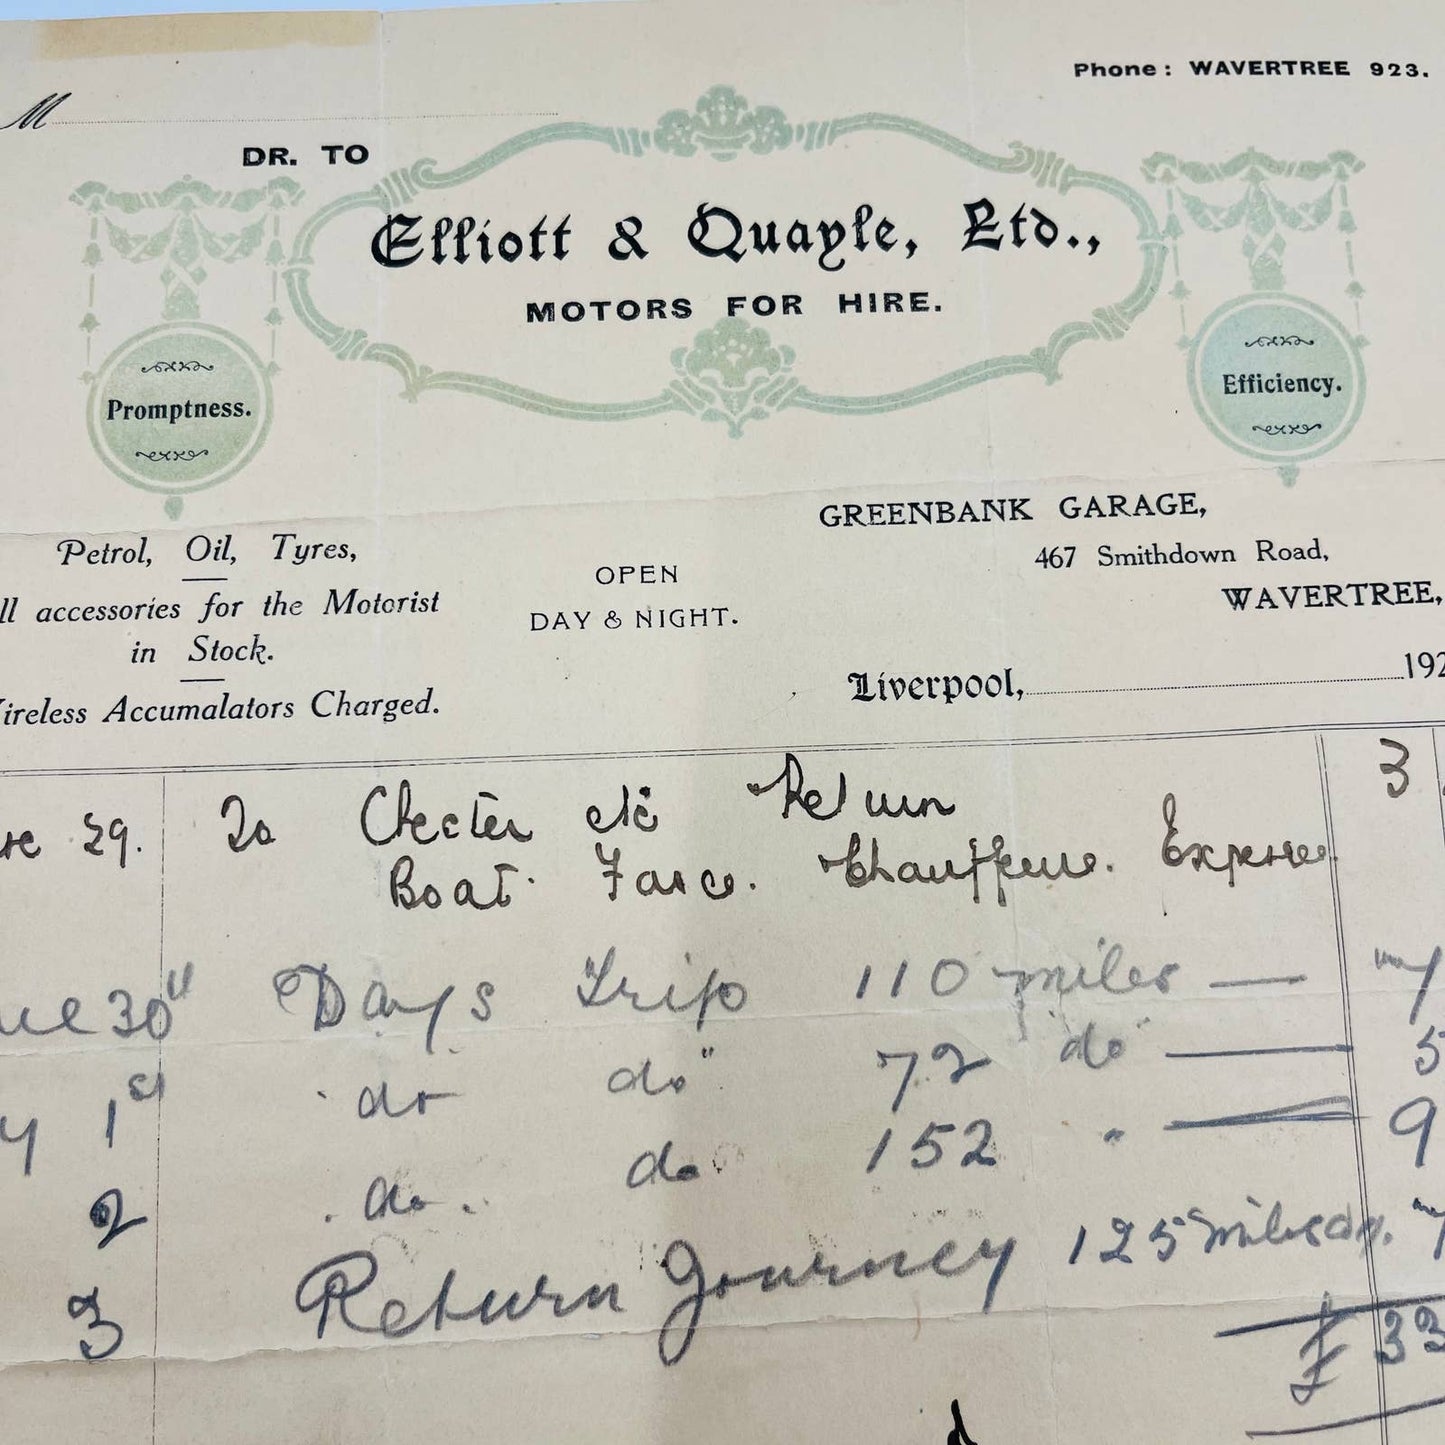 Phone: WAVERTREE 923.
M
DR. TO
Elliott & Quayle, Ltd.,
MOTORS FOR HIRE.
Promptness.
Efficiency.
GREENBANK GARAGE,
467 Smithdown Road,
WAVERTREE,
Petrol, Oil, Tyres,
ll accessories for the Motorist
in Stock.
ireless Accumalators Charged.
OPEN
DAY & NIGHT.
Liverpool, 192
29. To Chester etc Return 3
Boat Farce. Chauffeurs. Expense
30" Days Trip 110 miles — 7
1st do do" 72 do" — 5
2 do. do 152 " — 9
3 Return Journey 125 miles 7
£ 33